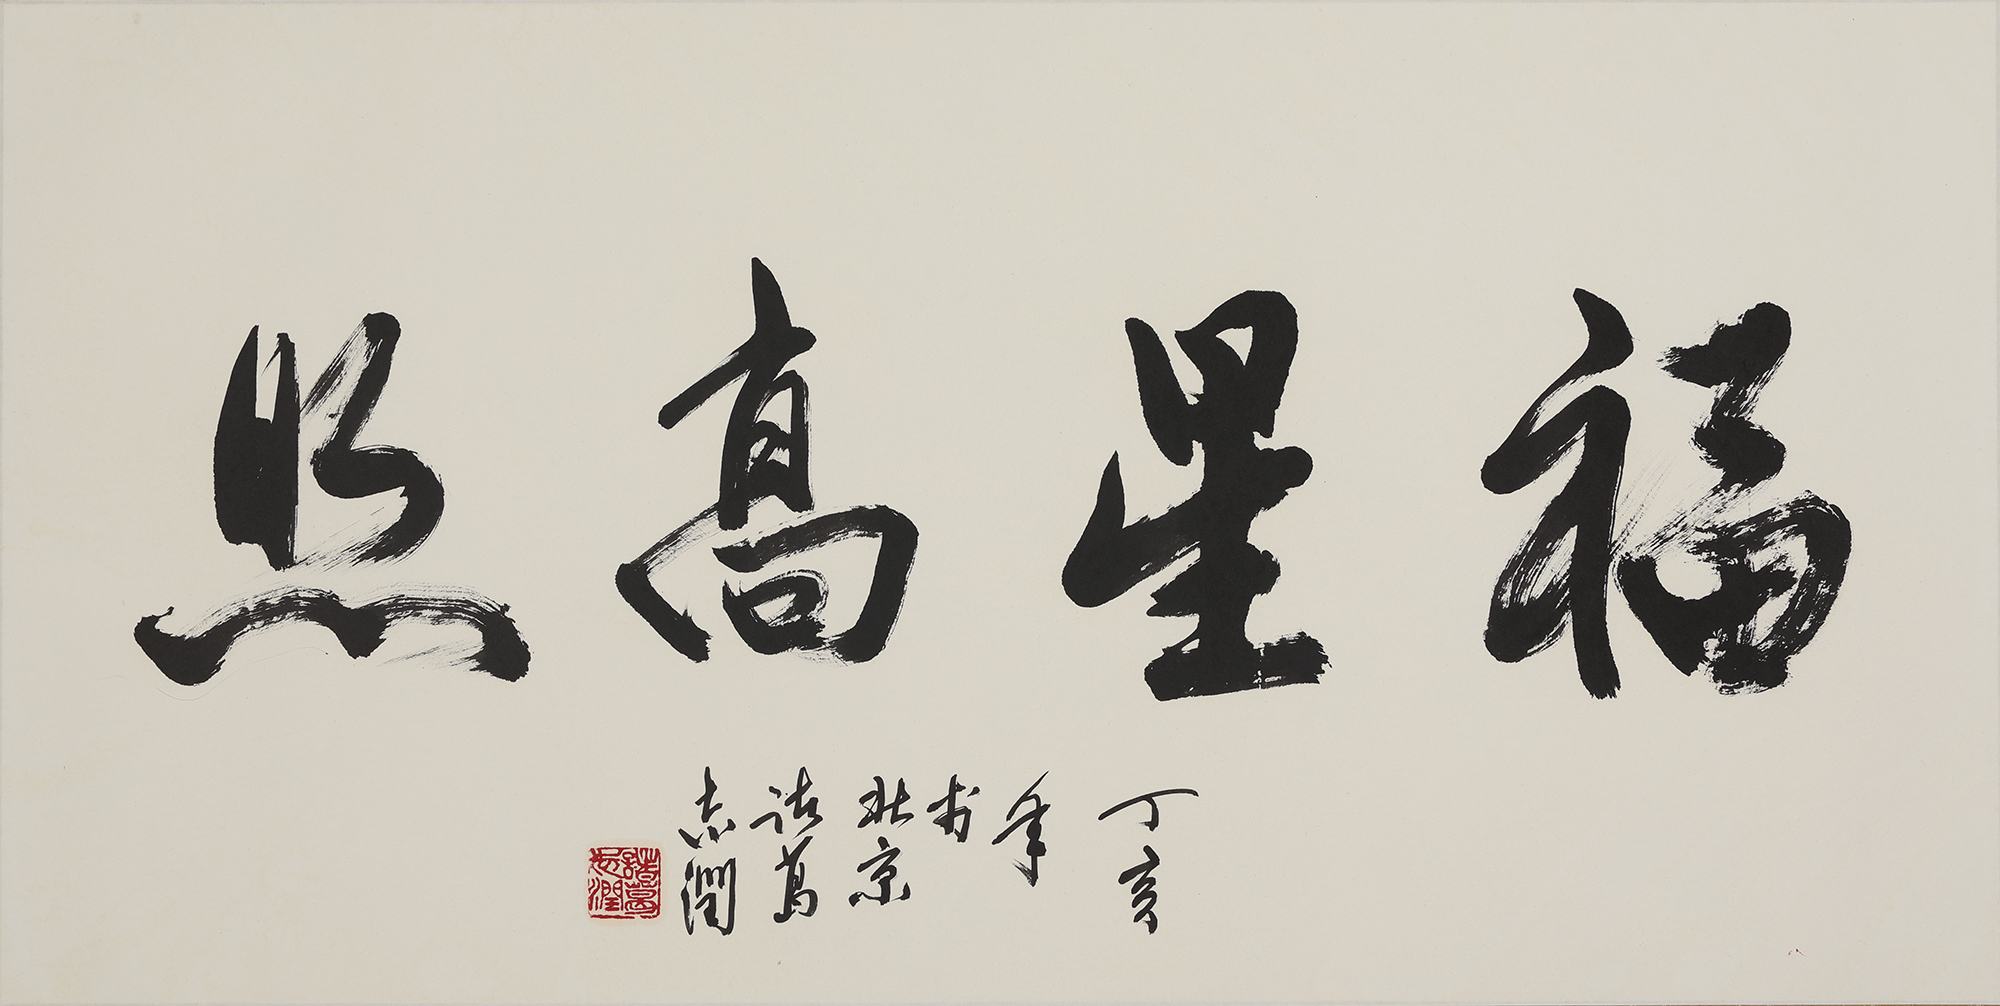 福星高照
丁亥
年
于
北京
诸葛
志潤
諸葛
志潤